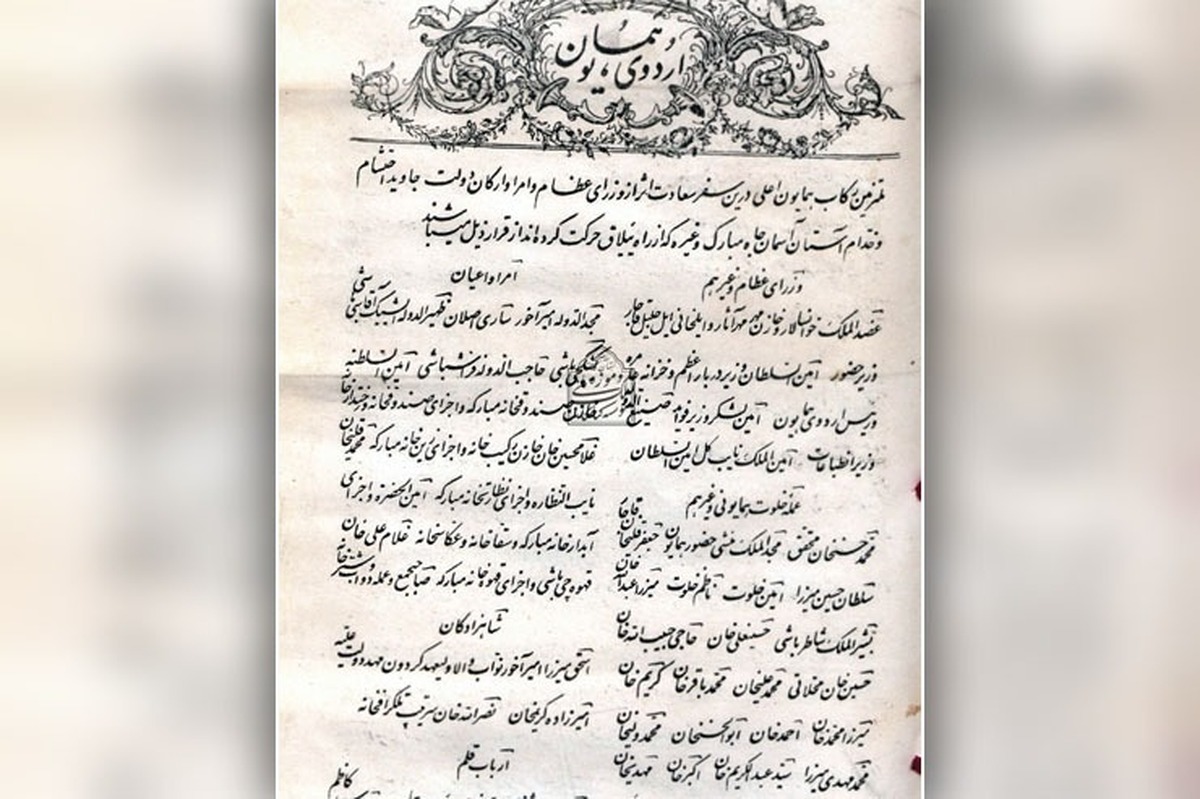 اردوی همایون
ملتزمین رکاب همایون اعلی درین سفر سعادت اثر از وزرای عظام و امرا و ارکان دولت جاوید احتشام
و خدام آستان آسمان جاه مبارک و غیره که از راه ییلاق حرکت کرده‌اند از قرار ذیل میباشند
وزرای عظام و غیرهم
عضدالملک خوانسالار و خازن مهر مهر آثار و ایلخانی ایل جلیل قاجار
وزیر حضور امین السلطان وزیر دربار اعظم و خزانه عامره
و رئیس اردوی همایون امین لشکر وزیر فواید صنیع الدوله
وزیر انطباعات امین الملک نایب کل امین السلطان
عمله خلوت همایونی و غیرهم
محمد حسنخان محقق مجدالملک منشی حضور همایون جعفرقلیخان قاجار
سلطان حسین میرزا امین خلوت ناظم خلوت میرزا عبدالله خان
بشیرالملک شاطرباشی حسینعلی خان حاجی حبیب الله خان
حسین خان محلاتی محمد علیخان محمد باقرخان کریم خان
میرزا محمد خان احمد خان ابوالحسنخان محمد ولیخان
محمد مهدی میرزا سید عبدالکریم خان اکبر خان مهدیخان
امرا و اعیان
مجدالدوله امیرآخور ساری اصلان ظهیرالدوله ایشیک آقاسی باشی
تفنگچی باشی حاجب الدوله فراشباشی امین السلطنه
صندوقخانه مبارکه و اجزای صندوقخانه و
غلامحسین خان خازن رکیب خانه و اجزای زین خانه مبارکه محمد قلیخان
نایب النظاره و اجزای نظارتخانه مبارکه امین الحضره و اجزای
آبدارخانه مبارکه و سقاخانه و عکاسخانه غلام علی خان
قهوه چی باشی و اجزای قهوه خانه مبارکه صاحبجمع و عمله دواب و شترخانه
شاهزادگان
اسحق میرزا امیرآخور نواب والا ولیعهد گردون مهد دولت علیه
امیرزاده کریمخان نصرالله خان سرتیپ تلگرافخانه
ارباب قلم
کاظم